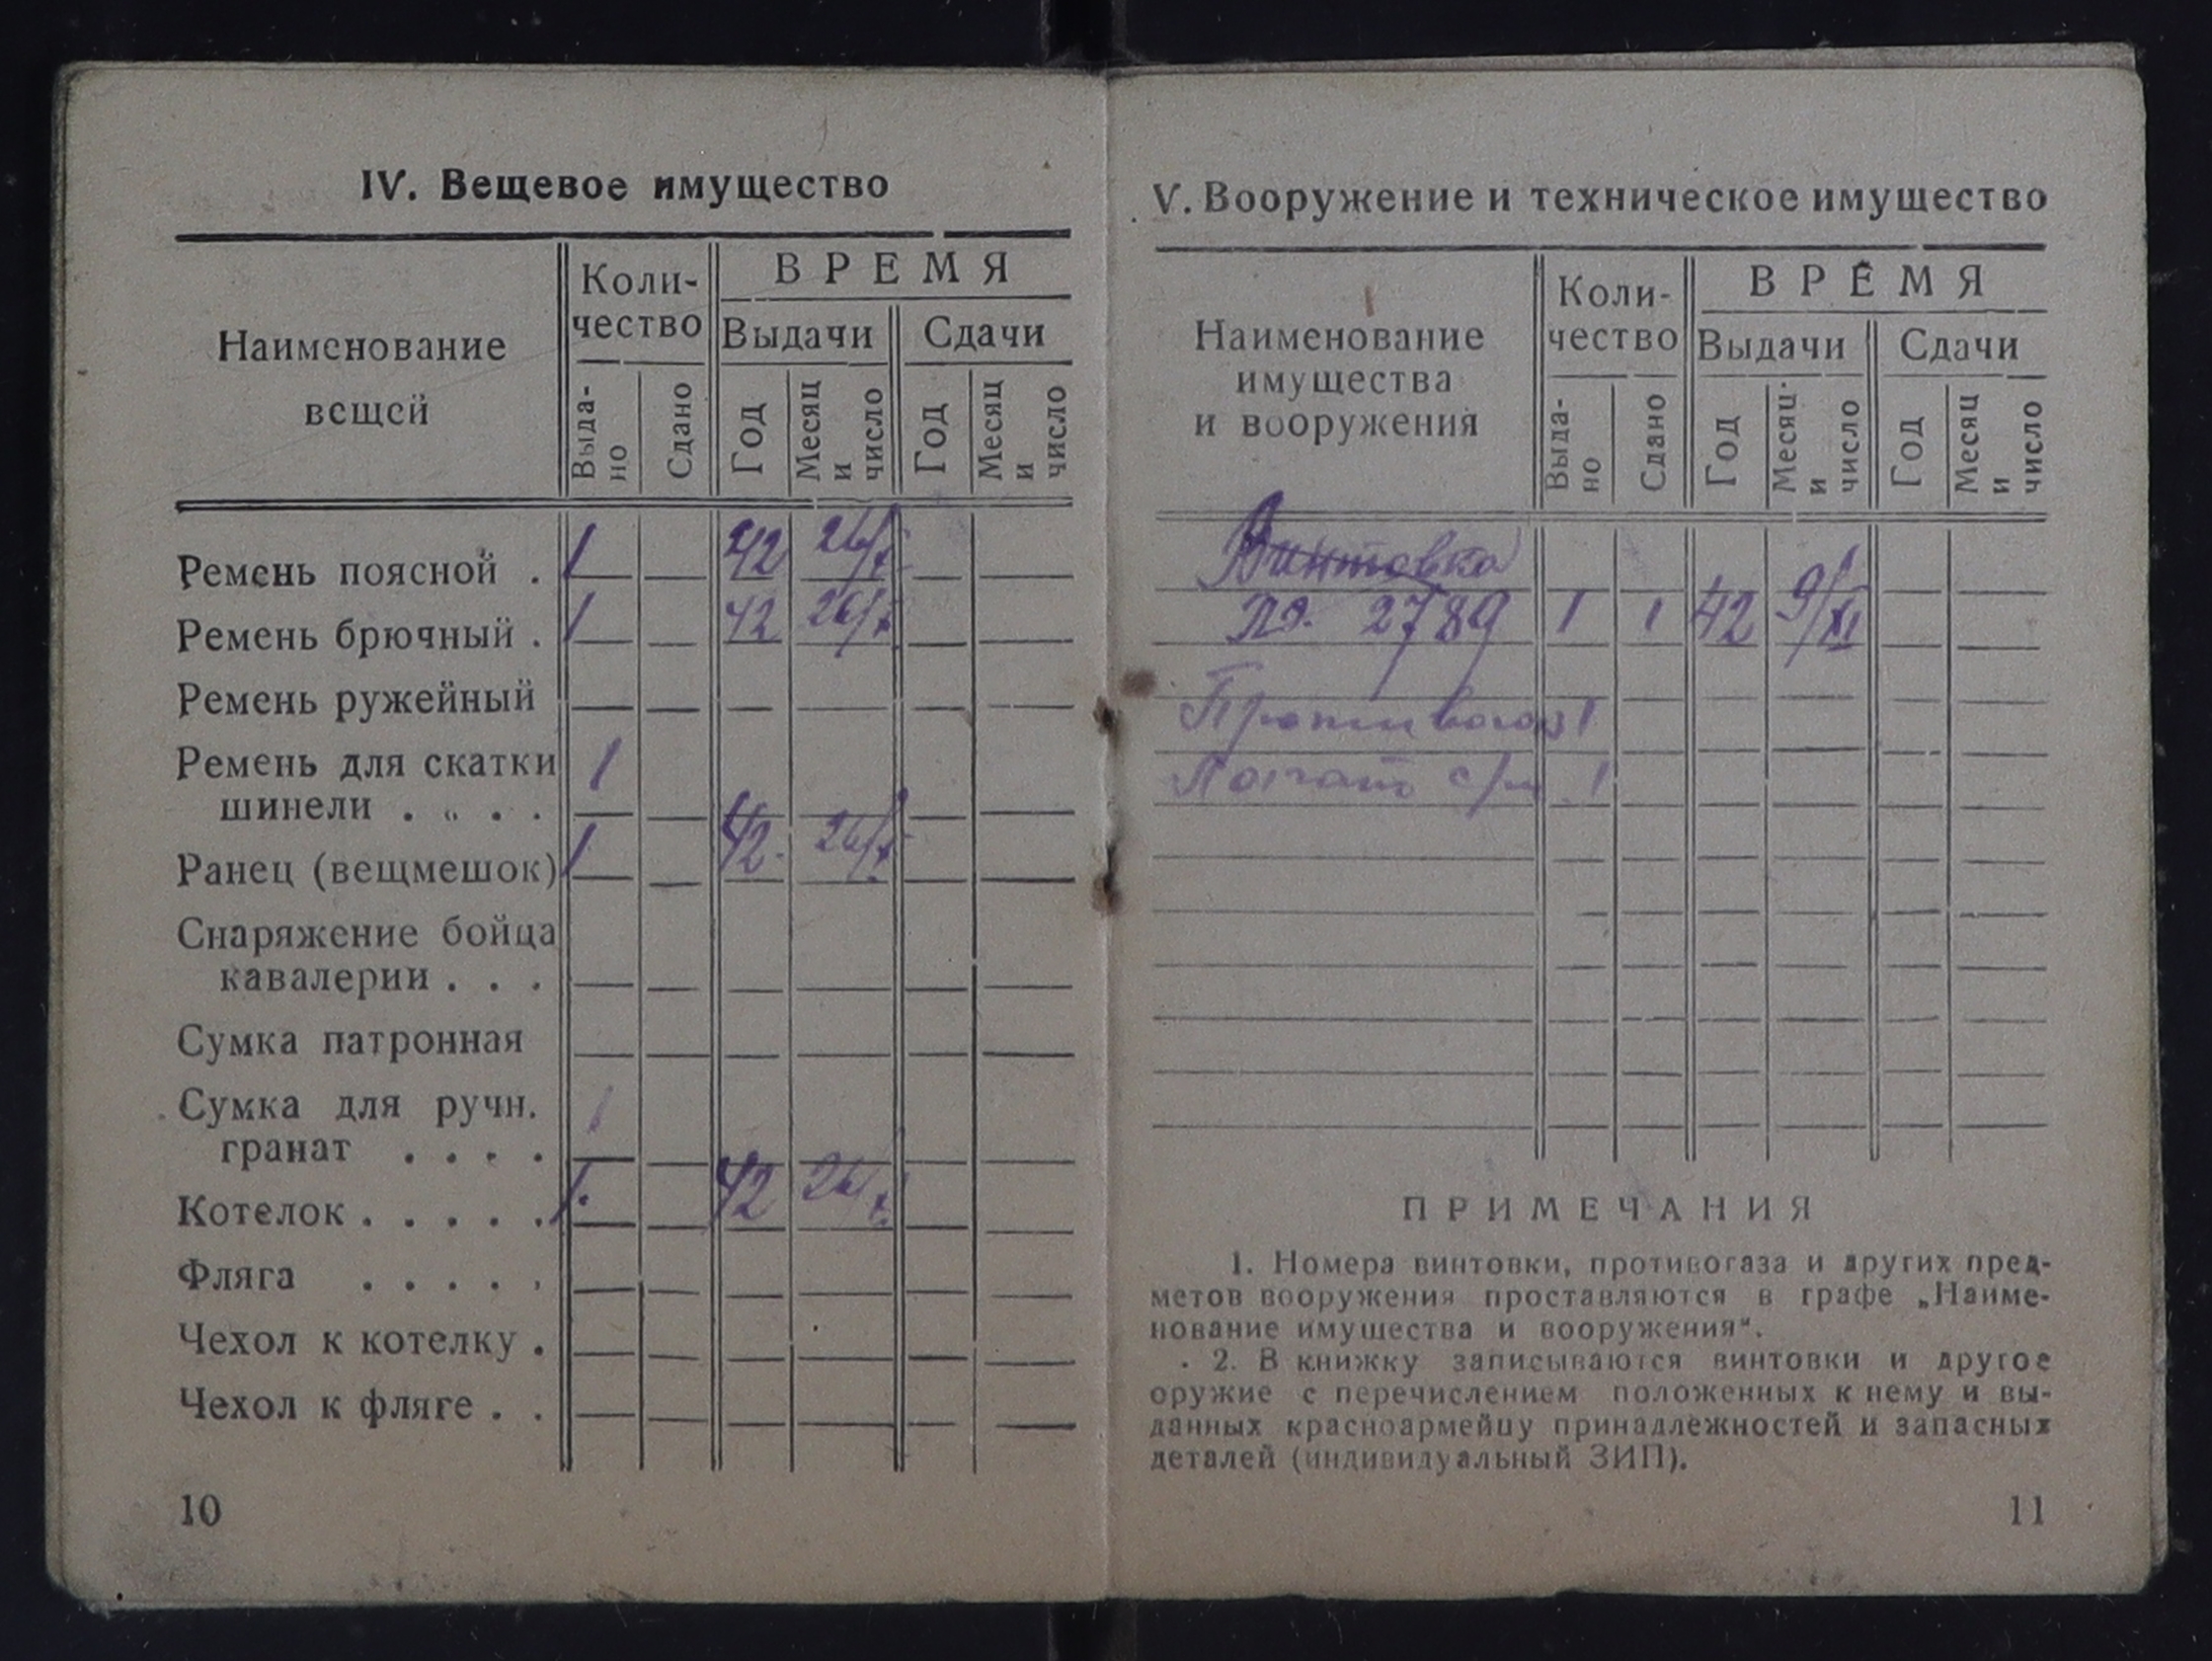 IV. Вещевое имущество
Наименование вещей
Коли-
чество
ВРЕМЯ
Выдачи
Сдачи
Выда-
но
Сдано
Год
Месяц
и
число
Год
Месяц
и
число
Ремень поясной . 1 42
Ремень брючный . 1 42
Ремень ружейный
Ремень для скатки 1
шинели . „ . .
Ранец (вещмешок) 1 42
Снаряжение бойца
кавалерии . . .
Сумка патронная
Сумка для ручн. 1
гранат . . . .
Котелок . . . . . 1. 42
Фляга . . . . .
Чехол к котелку .
Чехол к фляге . .
10
V. Вооружение и техническое имущество
Наименование
имущества
и вооружения
Коли-
чество
ВРЕМЯ
Выдачи
Сдачи
Выда-
но
Сдано
Год
Месяц
и
число
Год
Месяц
и
число
Винтовка
2789 1 1 42 9/XI
Противогаз 1
1
ПРИМЕЧАНИЯ
1. Номера винтовки, противогаза и других пред-
метов вооружения проставляются в графе „Наиме-
нование имущества и вооружения“.
2. В книжку записываются винтовки и другое
оружие с перечислением положенных к нему и вы-
данных красноармейцу принадлежностей и запасных
деталей (индивидуальный ЗИП).
11